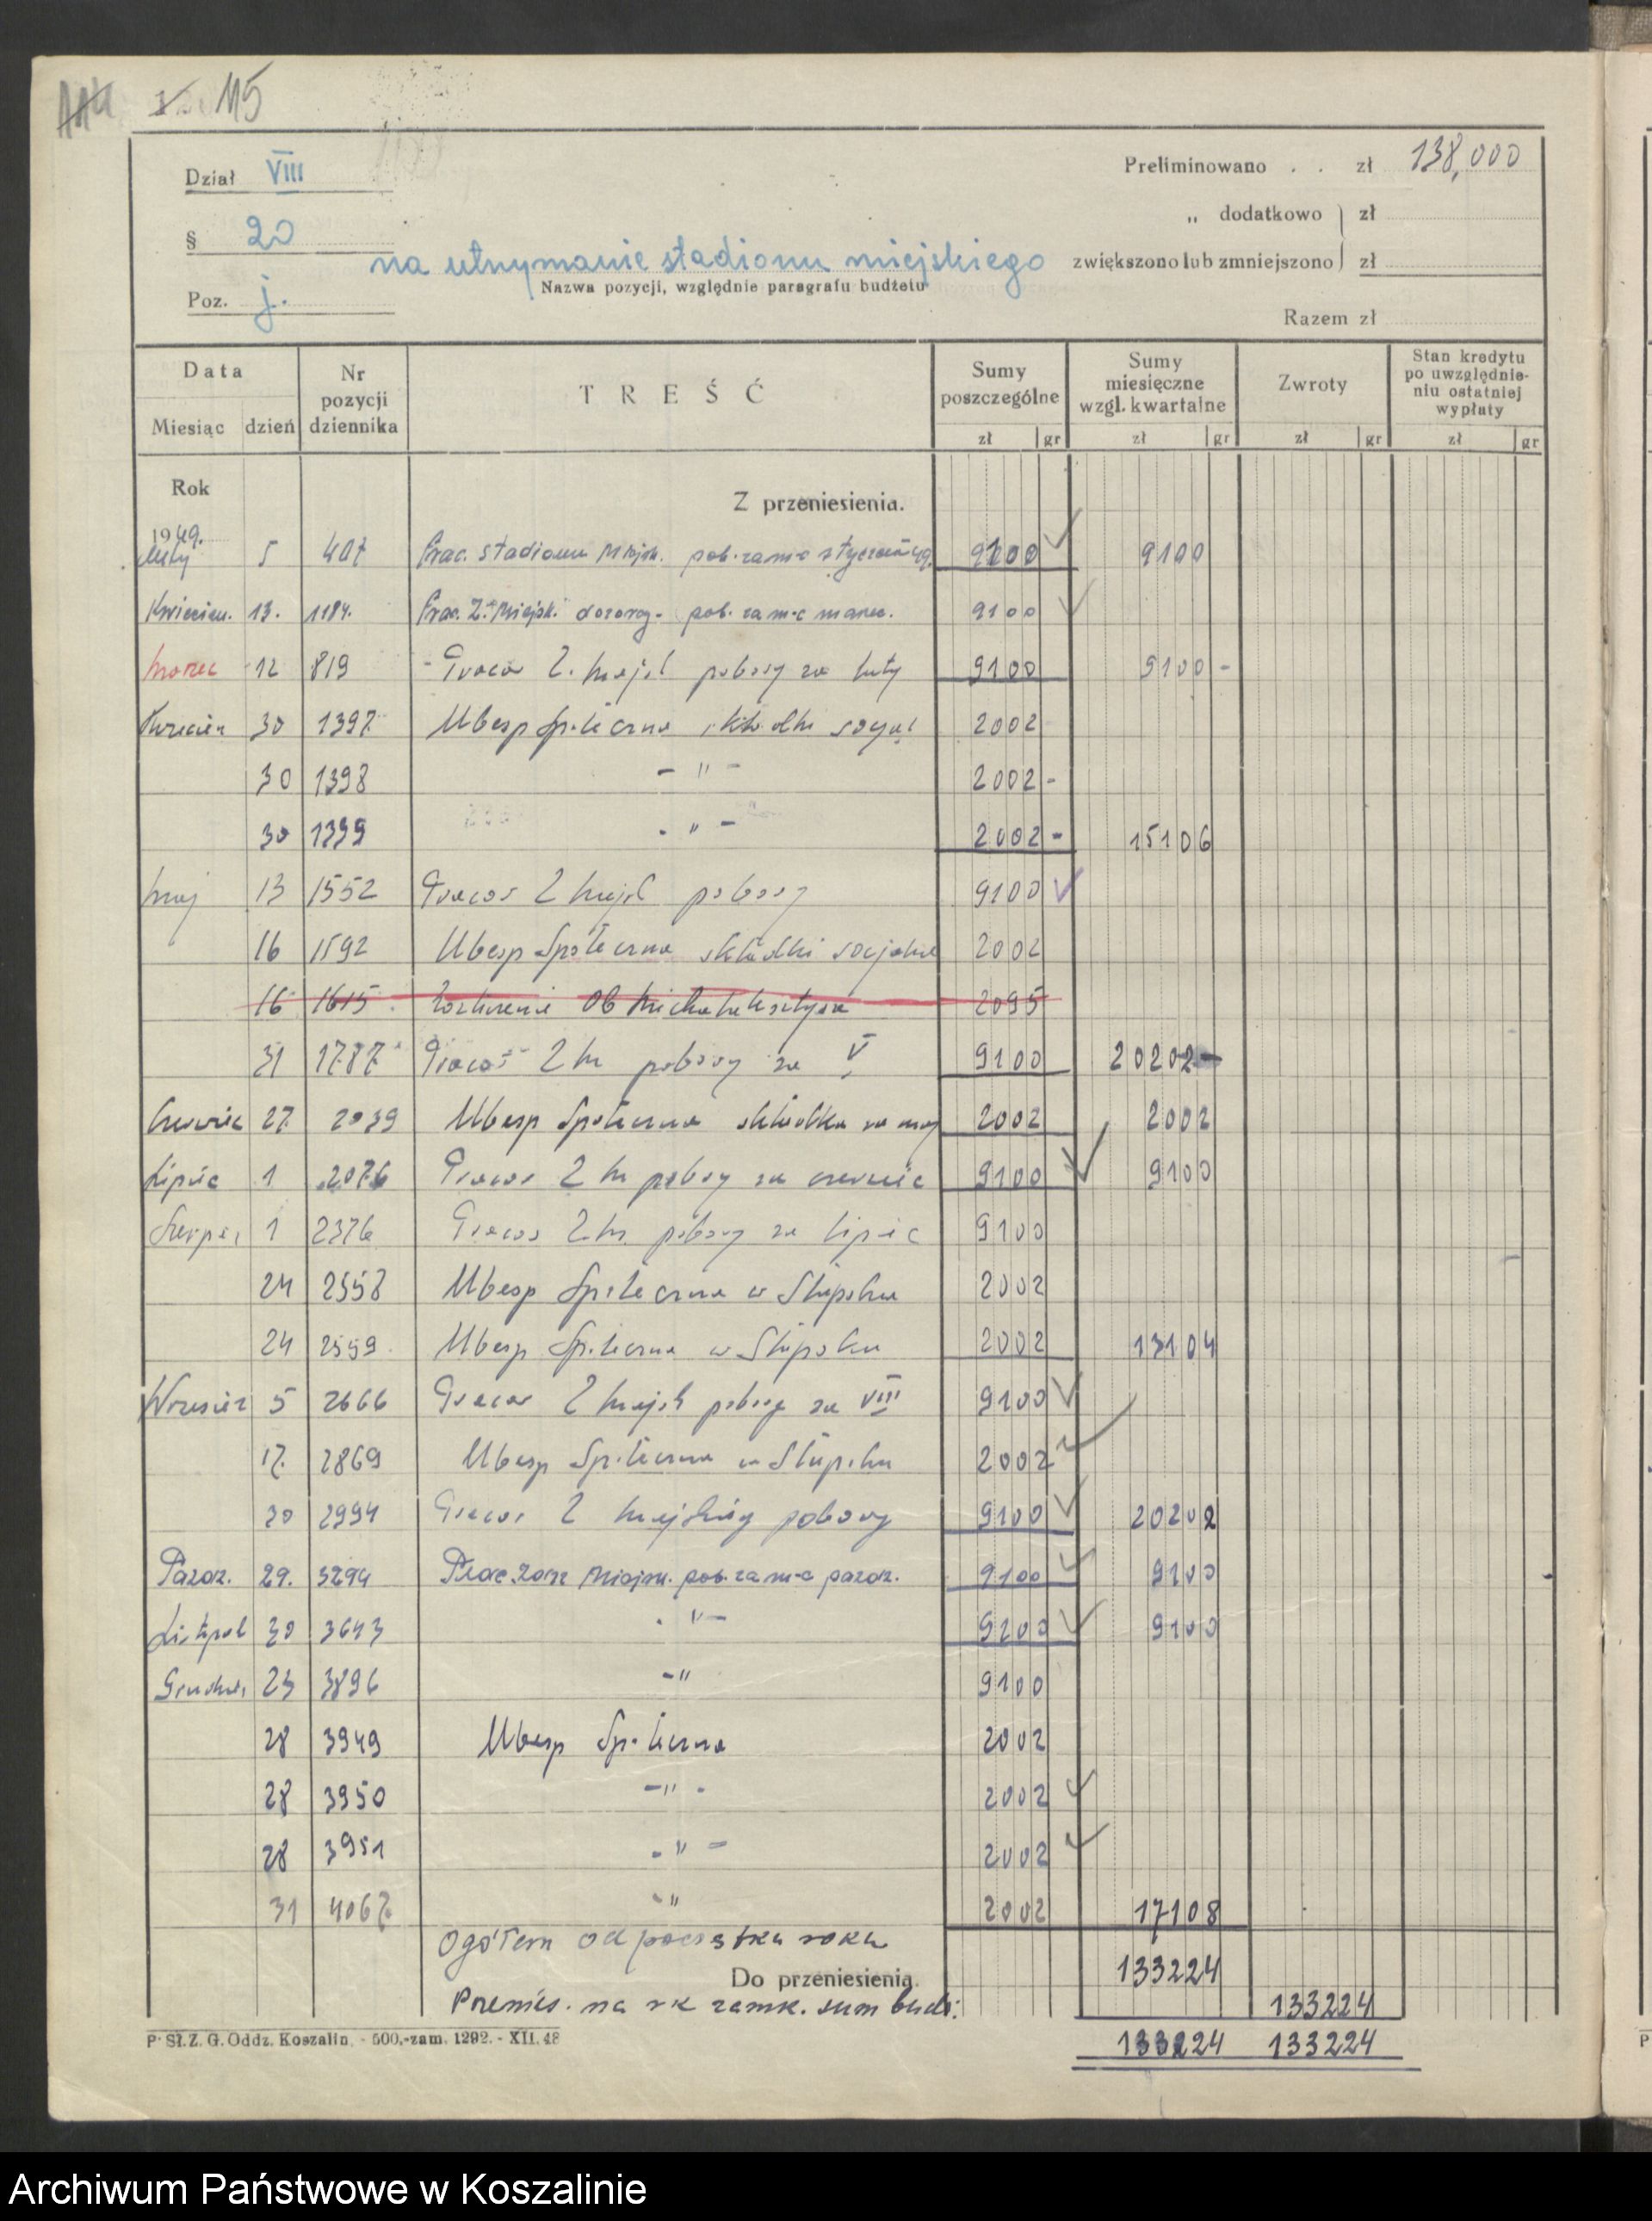 115
Dział VIII
Preliminowano . . zł 138,000
„ dodatkowo zł
§ 20
na utrzymanie stadionu miejskiego
zwiększono lub zmniejszono zł
Nazwa pozycji, względnie paragrafu budżetu
Poz. j.
Razem zł
Data Nr pozycji dziennika TREŚĆ Sumy poszczególne Sumy miesięczne wzgl. kwartalne Zwroty Stan kredytu po uwzględnieniu ostatniej wypłaty
Miesiąc dzień zł gr zł gr zł gr zł gr
Rok Z przeniesienia.
1949.
luty 5 407 Prac. stadionu Miejsk. pob. za m-c styczeń 49. 9100 9100
Kwiecień. 13. 1184. Prac. Z. Miejsk. dozorcy - pob. za m-c marzec. 9100
Marzec 12 819 - Pracow Z. Miejsk pobory za luty 9100 9100 -
Kwiecień 30 1397 Ubezp Społeczna składki socjal 2002
30 1398 - " - 2002 -
30 1399 - " - 2002 - 15106
Maj 13 1552 Pracow Z Miejsk pobory 9100
16 1592 Ubezp Społeczna składki socjalne 2002
16 1615 2095
31 1787 Pracow Z M pobory za V 9100 20202 -
Czerwiec 27 2039 Ubezp Społeczna składka za maj 2002 2002
Lipiec 1 2076 Pracow Z M pobory za czerwiec 9100 9100
Sierpień 1 2376 Pracow Z. M. pobory za lipiec 9100
24 2558 Ubezp Społeczna w Słupsku 2002
24 2559 Ubezp Społeczna w Słupsku 2002 13104
Wrzesień 5 2666 Pracow Z Miejsk pobory za VIII 9100
17. 2869 Ubezp Społeczna w Słupsku 2002
30 2994 Pracow Z Miejskiej pobory 9100 20202
Paźdz. 29. 3294 Prac. Zarz Miejsk. pob. za m-c paźdz. 9100 9100
Listopad 30 3643 - " - 9100 9100
Grudzień 23 3896 - " 9100
28 3949 Ubezp Społeczna 2002
28 3950 - " - 2002
28 3951 - " - 2002
31 4067 - " 2002 17108
Ogółem od początku roku
Do przeniesienia. 133224
Przenies. na rk zamk. sum budż. 133224
133224 133224
P. Sł. Z. G. Oddz. Koszalin, - 500,-zam. 1292. - XII. 48
Archiwum Państwowe w Koszalinie